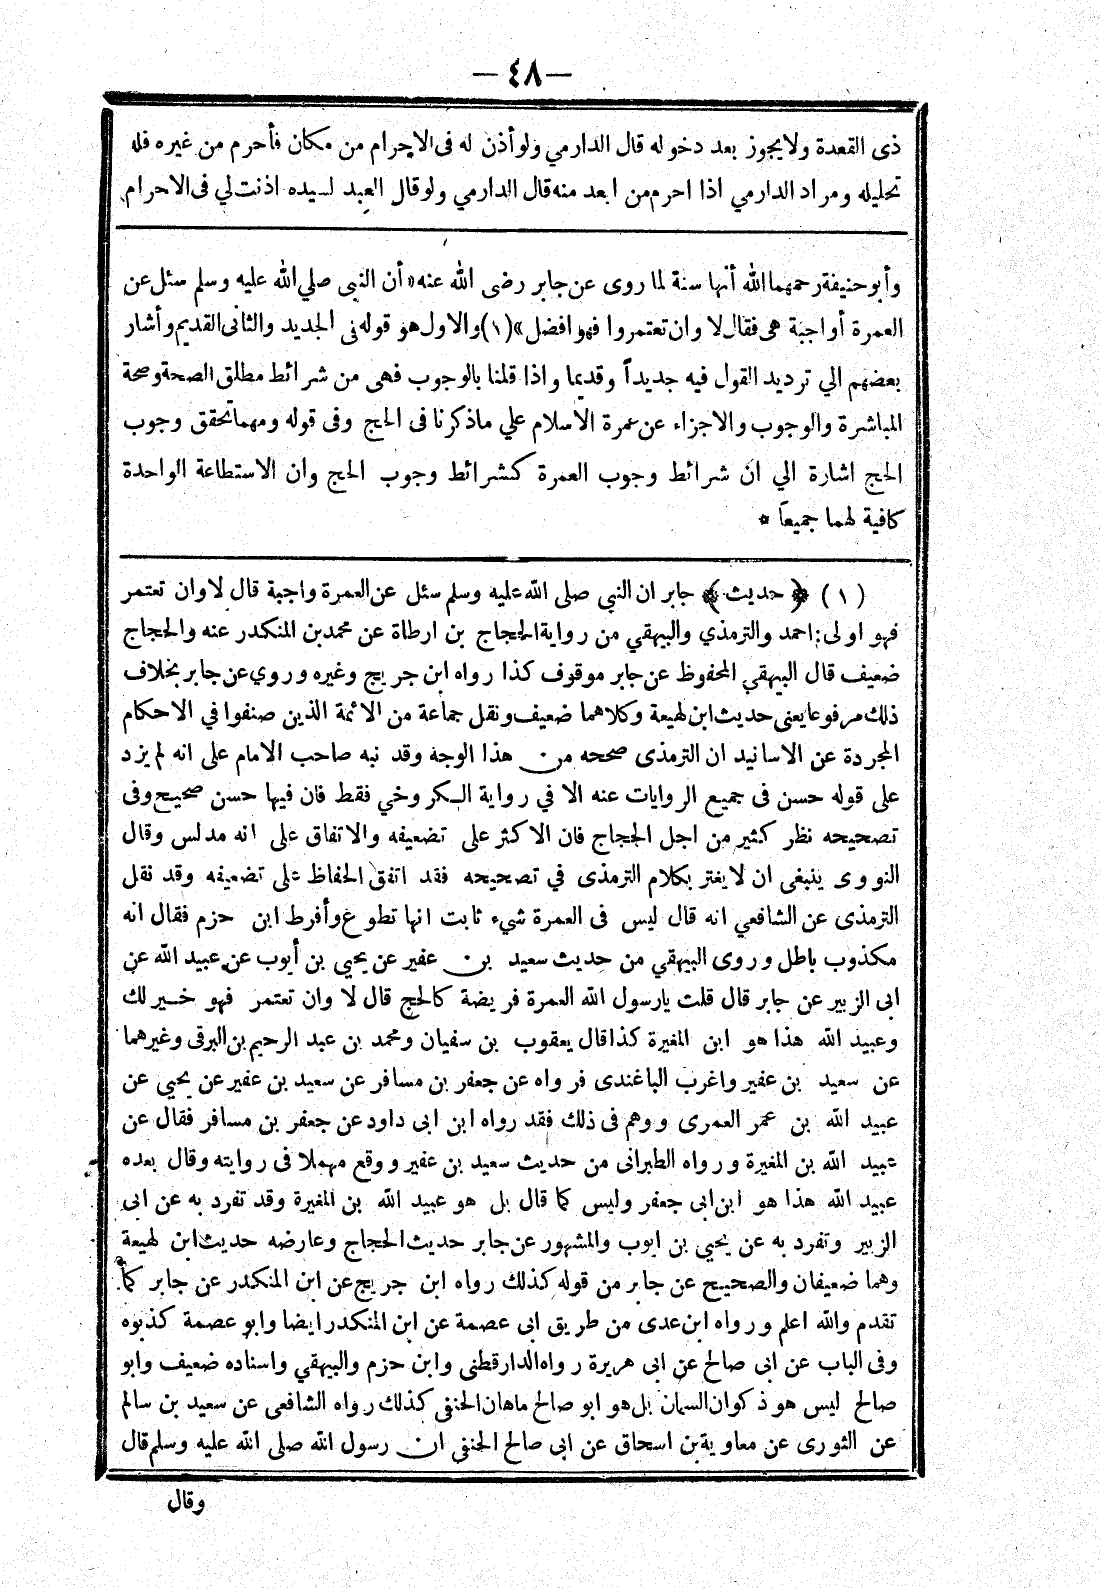 — ٤٨ —
ذى القعدة ولا يجوز بعد دخوله قال الدارمي ولو أذن له فى الاحرام من مكان فأحرم من غيره فله
تحليله ومراد الدارمي اذا احرم من ابعد منه قال الدارمي ولو قال العبد لسيده اذنت لي فى الاحرام
وأبو حنيفة رحمهما الله أنها سنة لما روى عن جابر رضى الله عنه «أن النبى صلي الله عليه وسلم سئل عن
العمرة أواجبة هى فقال لا وان تعتمروا فهو افضل» (١) والاول هو قوله فى الجديد والثانى القديم وأشار
بعضهم الي ترديد القول فيه جديداً وقديما واذا قلنا بالوجوب فهى من شرائط مطلق الصحة وصحة
المباشرة والوجوب والاجزاء عن عمرة الاسلام علي ماذكرنا فى الحج وفى قوله ومهما تحقق وجوب
الحج اشارة الي ان شرائط وجوب العمرة كشرائط وجوب الحج وأن الاستطاعة الواحدة
كافية لهما جميعاً *
(١) ﴿حديث﴾ جابر ان النبي صلى الله عليه وسلم سئل عن العمرة واجبة قال لا وان تعتمر
فهو اولى: احمد والترمذي والبيهقي من رواية الحجاج بن ارطاة عن محمد بن المنكدر عنه والحجاج
ضعيف قال البيهقي المحفوظ عن جابر موقوف كذا رواه ابن جريج وغيره وروي عن جابر بخلاف
ذلك مرفوعا يعنى حديث ابن لهيعة وكلاهما ضعيف ونقل جماعة من الائمة الذين صنفوا في الاحكام
المجردة عن الاسانيد ان الترمذى صححه من هذا الوجه وقد نبه صاحب الامام على انه لم يزد
على قوله حسن فى جميع الروايات عنه الا في رواية الكروخي فقط فان فيها حسن صحيح وفى
تصحيحه نظر كثير من اجل الحجاج فان الاكثر على تضعيفه والاتفاق على انه مدلس وقال
النووى ينبغى ان لا يغتر بكلام الترمذى في تصحيحه فقد اتفق الحفاظ على تضعيفه وقد نقل
الترمذى عن الشافعي انه قال ليس فى العمرة شيء ثابت انها تطوع وأفرط ابن حزم فقال انه
مكذوب باطل وروى البيهقي من حديث سعيد بن عفير عن يحيى بن أيوب عن عبيد الله عن
ابى الزبير عن جابر قال قلت يارسول الله العمرة فريضة كالحج قال لا وان تعتمر فهو خير لك
وعبيد الله هذا هو ابن المغيرة كذا قال يعقوب بن سفيان ومحمد بن عبد الرحيم بن البرقى وغيرهما
عن سعيد بن عفير واغرب الباغندى فرواه عن جعفر بن مسافر عن سعيد بن عفير عن يحيي عن
عبيد الله بن عمر العمرى ووهم فى ذلك فقد رواه ابن ابى داود عن جعفر بن مسافر فقال عن
عبيد الله بن المغيرة ورواه الطبرانى من حديث سعيد بن عفير ووقع مهملا فى روايته وقال بعده
عبيد الله هذا هو ابن ابى جعفر وليس كما قال بل هو عبيد الله بن المغيرة وقد تفرد به عن ابى
الزبير وتفرد به عن يحيي بن ايوب والمشهور عن جابر حديث الحجاج وعارضه حديث ابن لهيعة
وهما ضعيفان والصحيح عن جابر من قوله كذلك رواه ابن جريج عن ابن المنكدر عن جابر كما
تقدم والله اعلم ورواه ابن عدى من طريق ابى عصمة عن ابن المنكدر ايضا وابو عصمة كذبوه
وفى الباب عن ابى صالح عن ابى هريرة رواه الدارقطنى وابن حزم والبيهقي واسناده ضعيف وابو
صالح ليس هو ذكوان السمان بل هو ابو صالح ماهان الحنفى كذلك رواه الشافعى عن سعيد بن سالم
عن الثورى عن معاوية بن اسحاق عن ابى صالح الحنفى ان رسول الله صلى الله عليه وسلم قال
وقال